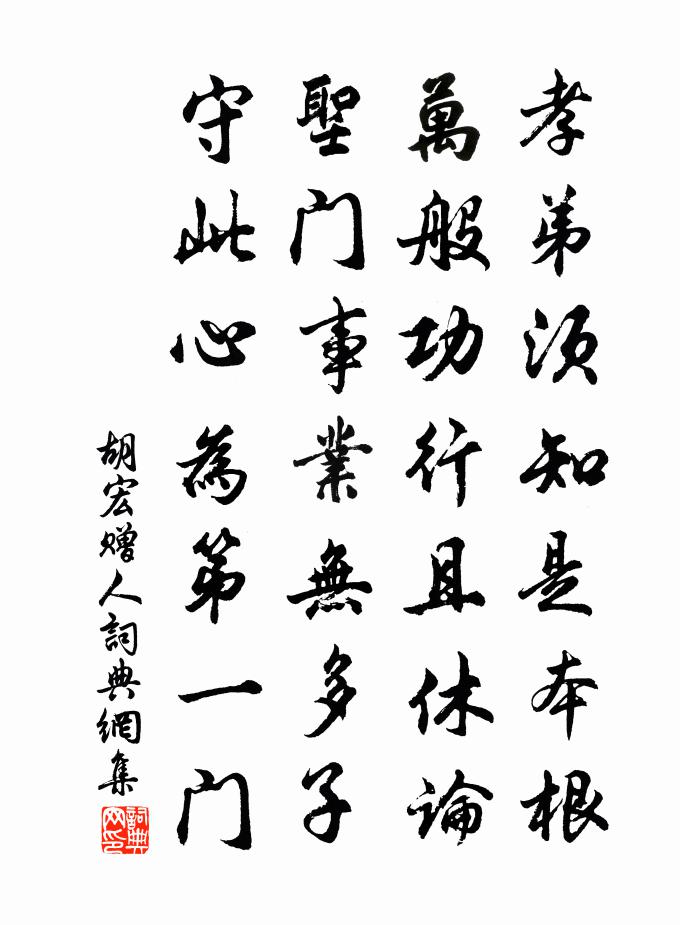 孝弟须知是本根
萬般功行且休論
聖门事業無多子
守此心為第一门
胡宏赠人詞典網集
詞典网印